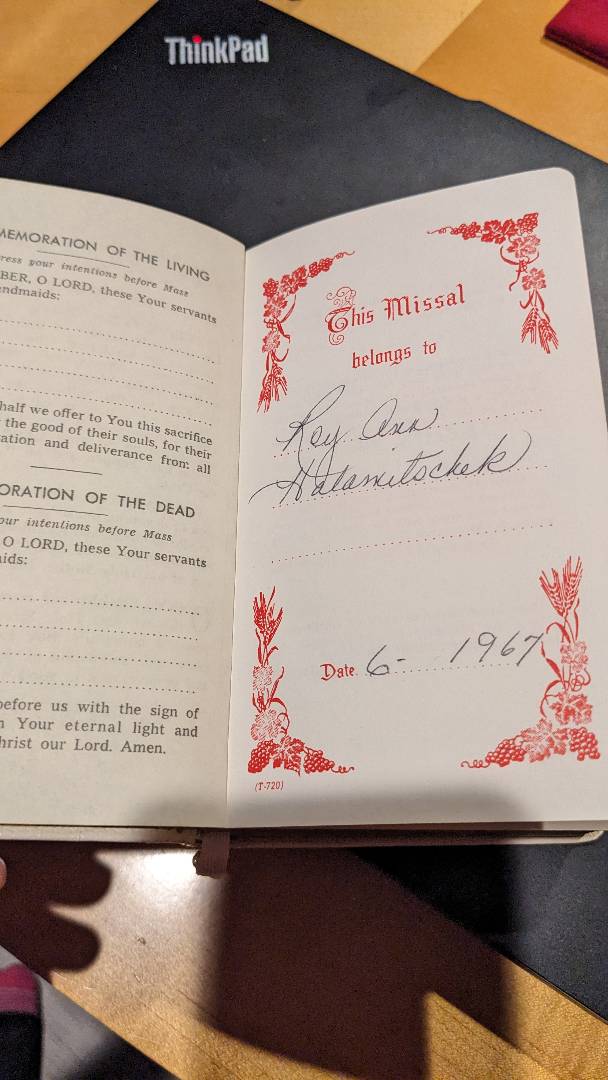 ThinkPad
MEMORATION OF THE LIVING
ress your intentions before Mass
BER, O LORD, these Your servants
ndmaids:
half we offer to You this sacrifice
the good of their souls, for their
ation and deliverance from all
ORATION OF THE DEAD
our intentions before Mass
O LORD, these Your servants
ids:
before us with the sign of
n Your eternal light and
hrist our Lord. Amen.
This Missal
belongs to
Roy Ann
Halamitschek
Date 6- 1967
(T-720)